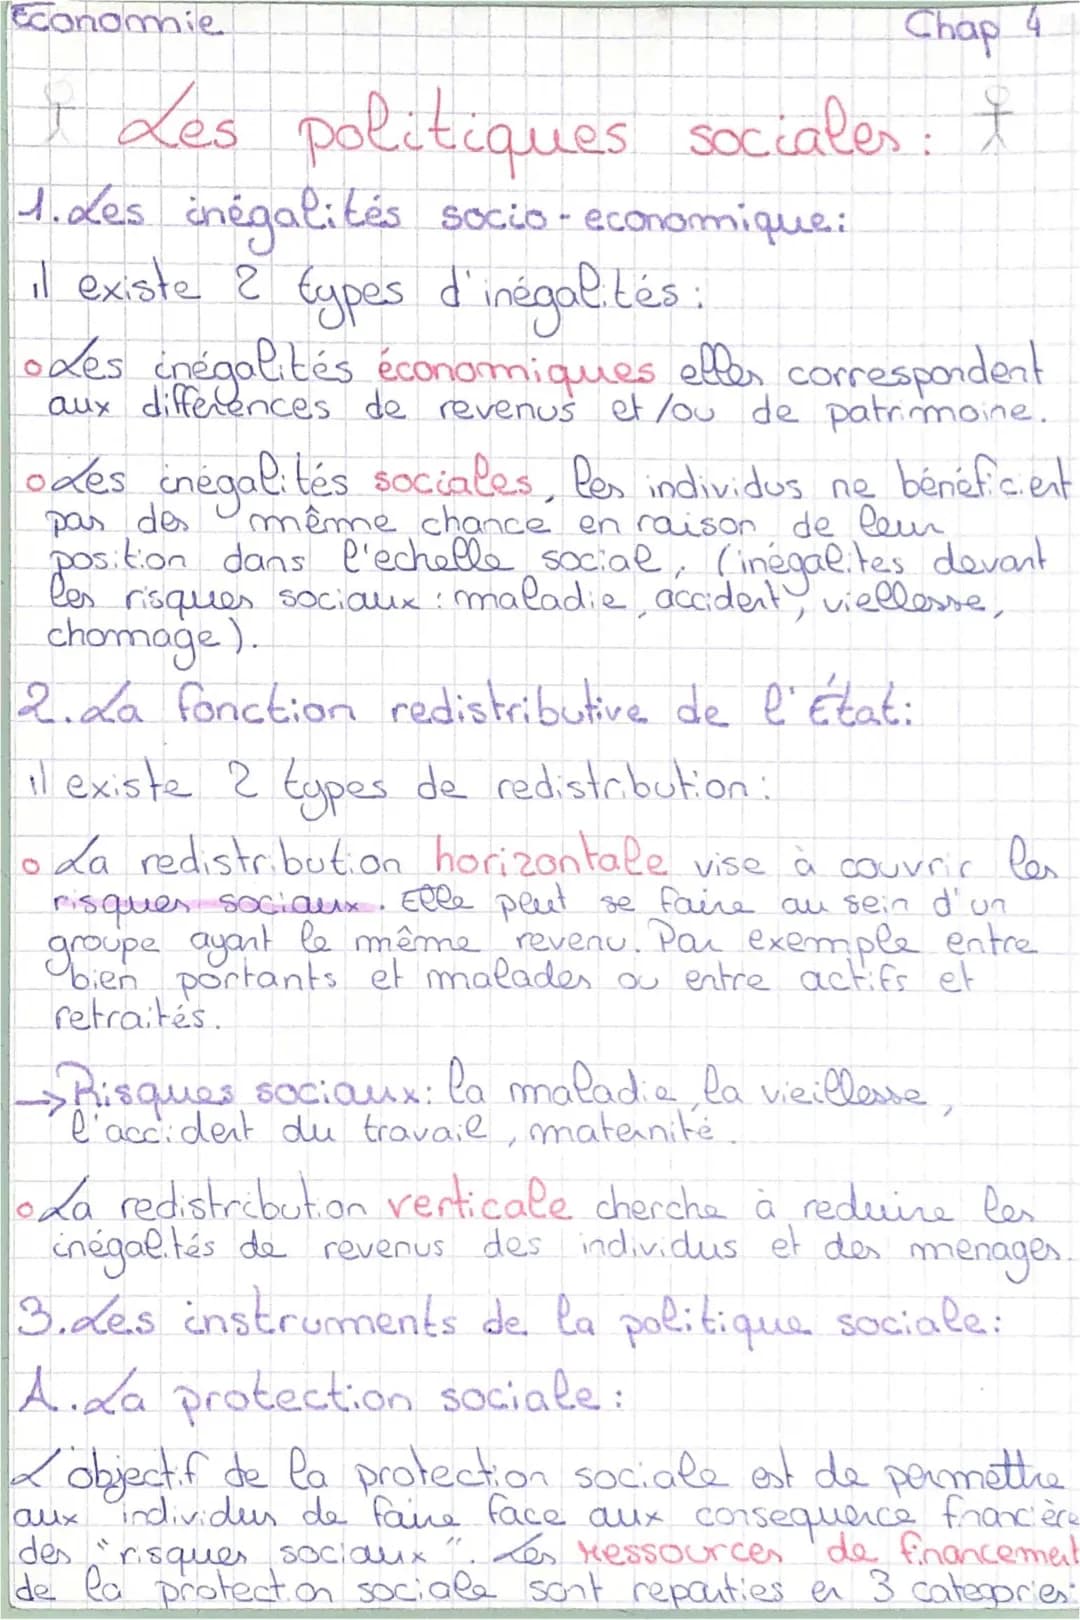 Economie
Chap 4
Les politiques sociales :
1. Les inégalités socio-economique :
il existe 2 types d'inégalités :
Les inégalités économiques elles correspondent
aux différences de revenus et/ou de patrimoine.
Les inégalités sociales, les individus ne bénéficient
pas des même chance en raison de leur
position dans l'echelle social, (inégalites devant
les risques sociaux : maladie, accident, viellesse,
chomage).
2. La fonction redistributive de l'État :
il existe 2 types de redistribution :
La redistribution horizontale vise à couvrir les
risques sociaux. Elle peut se faire au sein d'un
groupe ayant le même revenu. Par exemple entre
bien portants et malades ou entre actifs et
retraités.
→ Risques sociaux : la maladie, la vieillesse,
l'accident du travail, maternité.
La redistribution verticale cherche à reduire les
inégalités de revenus des individus et des menages.
3. Les instruments de la politique sociale :
A. La protection sociale :
L'objectif de la protection sociale est de permettre
aux individus de faire face aux consequence financière
des "risques sociaux". Les ressources de financement
de la protection sociale sont reparties en 3 categories :